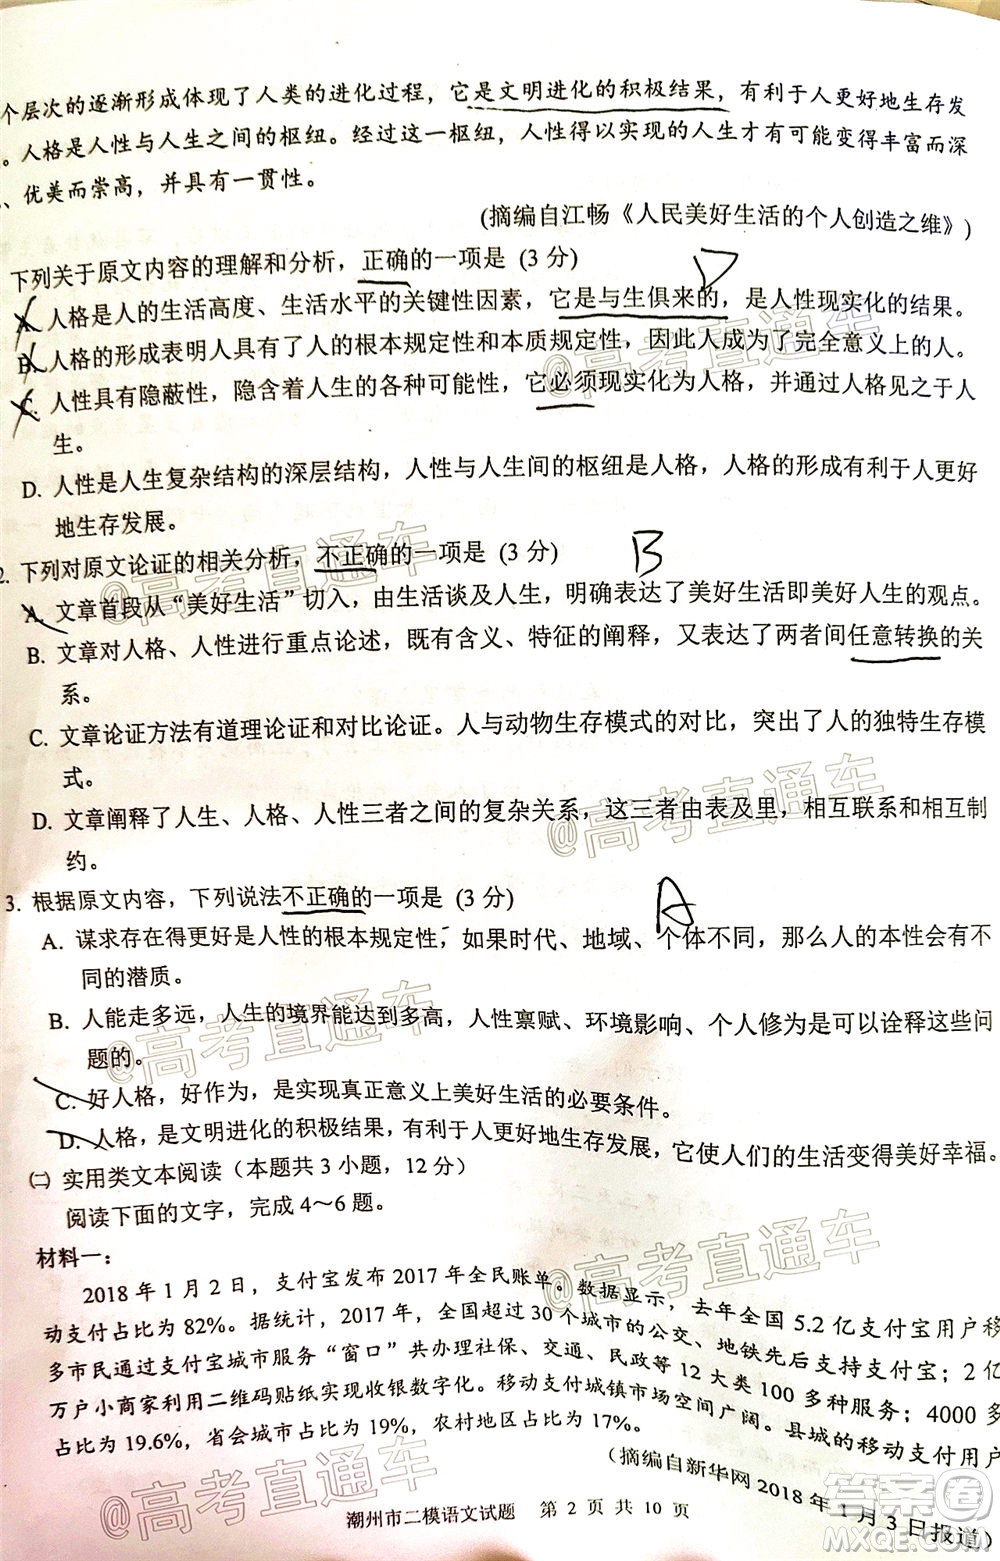 个层次的逐渐形成体现了人类的进化过程，它是文明进化的积极结果，有利于人更好地生存发
。人格是人性与人生之间的枢纽。经过这一枢纽，人性得以实现的人生才有可能变得丰富而深
、优美而崇高，并具有一贯性。
(摘编自江畅《人民美好生活的个人创造之维》)
下列关于原文内容的理解和分析，正确的一项是 (3 分)
D
A. 人格是人的生活高度、生活水平的关键性因素，它是与生俱来的，是人性现实化的结果。
B. 人格的形成表明人具有了人的根本规定性和本质规定性，因此人成为了完全意义上的人。
C. 人性具有隐蔽性，隐含着人生的各种可能性，它必须现实化为人格，并通过人格见之于人
生。
D. 人性是人生复杂结构的深层结构，人性与人生间的枢纽是人格，人格的形成有利于人更好
地生存发展。
2. 下列对原文论证的相关分析，不正确的一项是 (3 分)
B
A. 文章首段从“美好生活”切入，由生活谈及人生，明确表达了美好生活即美好人生的观点。
B. 文章对人格、人性进行重点论述，既有含义、特征的阐释，又表达了两者间任意转换的关
系。
C. 文章论证方法有道理论证和对比论证。人与动物生存模式的对比，突出了人的独特生存模
式。
D. 文章阐释了人生、人格、人性三者之间的复杂关系，这三者由表及里，相互联系和相互制
约。
3. 根据原文内容，下列说法不正确的一项是 (3 分)
A
A. 谋求存在得更好是人性的根本规定性，如果时代、地域、个体不同，那么人的本性会有不
同的潜质。
B. 人能走多远，人生的境界能达到多高，人性禀赋、环境影响、个人修为是可以诠释这些问
题的。
C. 好人格，好作为，是实现真正意义上美好生活的必要条件。
D. 人格，是文明进化的积极结果，有利于人更好地生存发展，它使人们的生活变得美好幸福。
㈡ 实用类文本阅读（本题共 3 小题，12 分）
阅读下面的文字，完成 4～6 题。
材料一：
2018 年 1 月 2 日，支付宝发布 2017 年全民账单。数据显示，去年全国 5.2 亿支付宝用户移
动支付占比为 82%。据统计，2017 年，全国超过 30 个城市的公交、地铁先后支持支付宝；2 亿
多市民通过支付宝城市服务“窗口”共办理社保、交通、民政等 12 大类 100 多种服务；4000 多
万户小商家利用二维码贴纸实现收银数字化。移动支付城镇市场空间广阔。县城的移动支付用户
占比为 19.6%，省会城市占比为 19%，农村地区占比为 17%。
（摘编自新华网 2018 年 1 月 3 日报道）
潮州市二模语文试题 第 2 页 共 10 页
@高考直通车
@高考直通车
@高考直通车
@高考直通车
@高考直通车
@高考直通车
答案圈